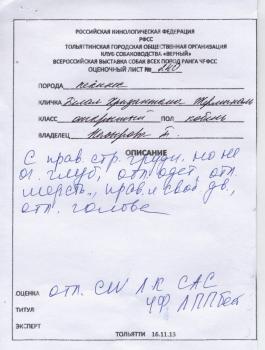 РОССИЙСКАЯ КИНОЛОГИЧЕСКАЯ ФЕДЕРАЦИЯ
РФСС
ТОЛЬЯТТИНСКАЯ ГОРОДСКАЯ ОБЩЕСТВЕННАЯ ОРГАНИЗАЦИЯ
КЛУБ СОБАКОВОДСТВА «ВЕРНЫЙ»
ВСЕРОССИЙСКАЯ ВЫСТАВКА СОБАК ВСЕХ ПОРОД РАНГА ЧФ РФСС
ОЦЕНОЧНЫЙ ЛИСТ № 240
ПОРОДА
КЛИЧКА Белая Хризантема
КЛАСС открытый ПОЛ кобель
ВЛАДЕЛЕЦ
ОПИСАНИЕ
С прав. стр. груди, но не
ог. глуб, отл. одет, отл.
шерсть, прав. и своб. дв.,
отл. голова
ОЦЕНКА отл. CW ЛК САС
ТИТУЛ ЧФ ЛПП Бест
ЭКСПЕРТ
ТОЛЬЯТТИ 16.11.13